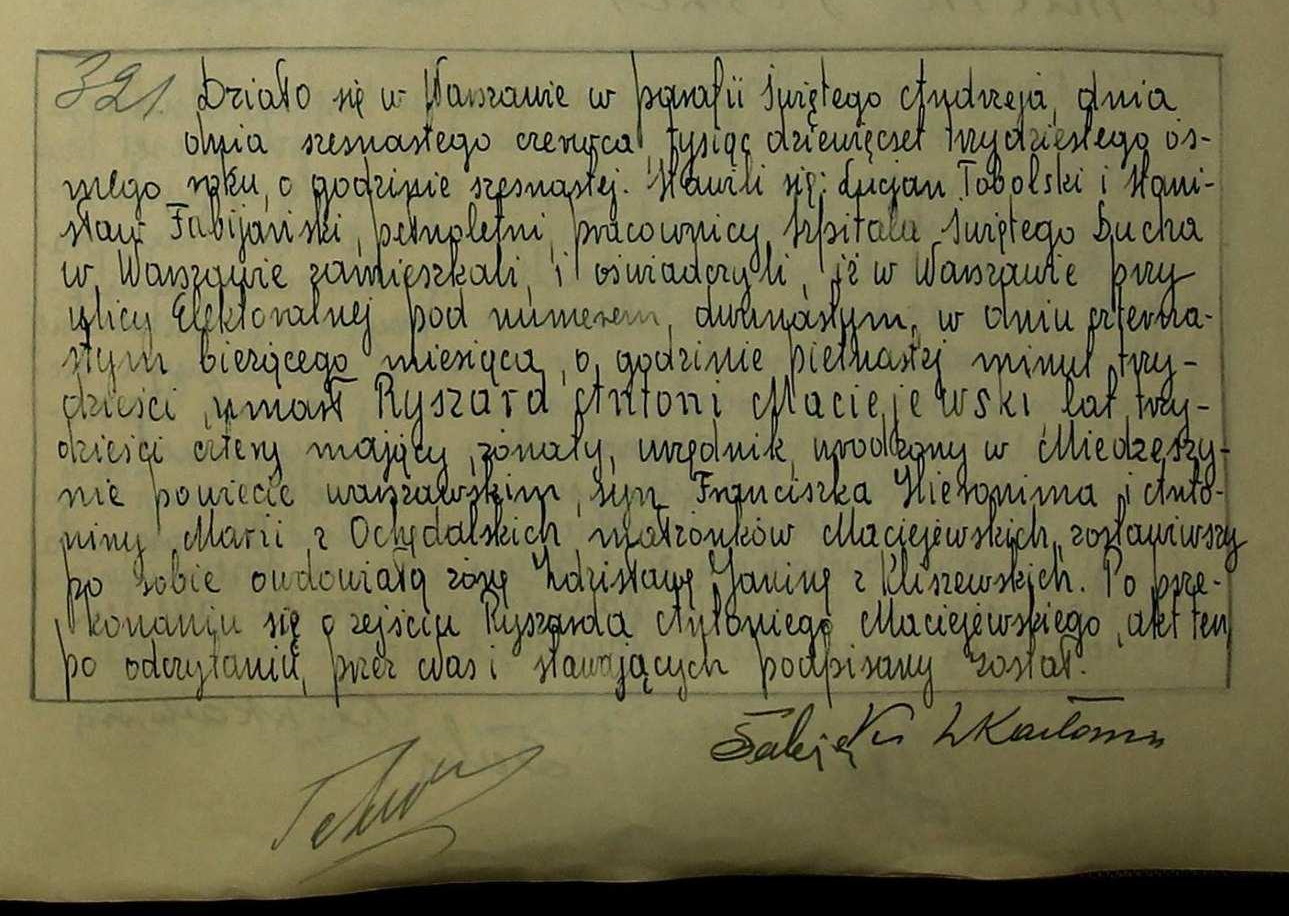 321. Działo się w Warszawie w parafii Świętego Andrzeja, dnia
dnia szesnastego czerwca, tysiąc dziewięćset trzydziestego ós-
mego roku, o godzinie szesnastej. Stawili się: Lucjan Tobolski i Stani-
sław Fabijański, pełnoletni, pracownicy Szpitala Świętego Ducha
w Warszawie zamieszkali, i oświadczyli, iż w Warszawie przy
ulicy Elektoralnej pod numerem, dwunastym, w dniu czterna-
stym bieżącego miesiąca, o godzinie piętnastej minut trzy-
dzieści, umarł Ryszard Antoni Maciejewski, lat trzy-
dzieści cztery mający, żonaty, urzędnik, urodzony w Miedzeszy-
nie powiecie warszawskim, syn Franciszka Hieronima i Anto-
niny Marii z Ochędalskich, małżonków Maciejewskich, zostawiwszy
po sobie owdowiałą żonę Zdzisławę Janinę z Kliszewskich. Po prze-
konaniu się o zejściu Ryszarda Antoniego Maciejewskiego, akt ten
po odczytaniu, przez Nas i stawających podpisany został.